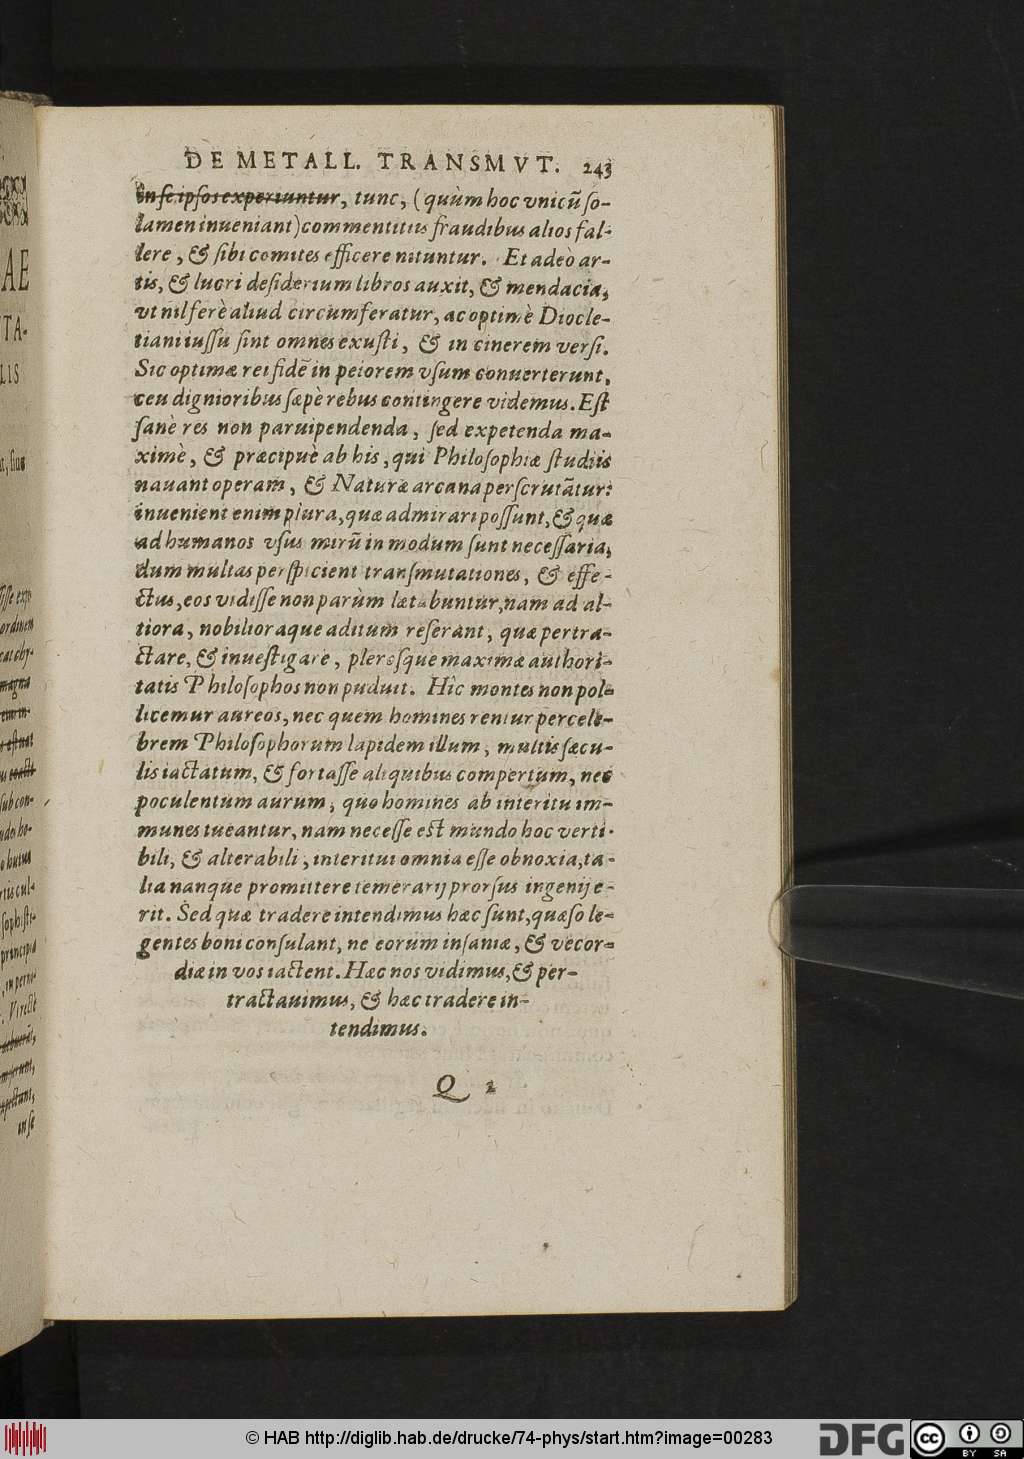 DE METALL. TRANSMVT. 243
in se ipsos experiuntur, tunc, (quùm hoc vnicũ so-
lamen inueniant) commentitiis fraudibus alios fal-
lere, & sibi comites efficere nituntur. Et adeò ar-
tis, & lucri desiderium libros auxit, & mendacia,
vt nil ferè aliud circumferatur, ac optimè Diocle-
tiani iussu sint omnes exusti, & in cinerem versi.
Sic optimæ rei fidẽ in peiorem vsum conuerterunt,
ceu dignioribus sæpè rebus contingere videmus. Est
sanè res non paruipendenda, sed expetenda ma-
ximè, & præcipuè ab his, qui Philosophiæ studiis
nauant operam, & Naturæ arcana perscrutãtur:
inuenient enim plura, quæ admirari possunt, & quæ
ad humanos vsus mirũ in modum sunt necessaria,
dum multas perspicient transmutationes, & effe-
ctus, eos vidisse non parùm lætabuntur, nam ad al-
tiora, nobilioraque aditum reserant, quæ pertra-
ctare, & inuestigare, plerosque maximæ authori-
tatis Philosophos non puduit. Hîc montes non pol-
licemur aureos, nec quem homines rentur percele-
brem Philosophorum lapidem illum, multis sæcu-
lis iactatum, & fortasse aliquibus compertum, nec
poculentum aurum, quo homines ab interitu im-
munes tueantur, nam necesse est mundo hoc verti-
bili, & alterabili, interitui omnia esse obnoxia, ta-
lia nanque promittere temerarij prorsus ingenij e-
rit. Sed quæ tradere intendimus hæc sunt, quæso le-
gentes boni consulant, ne eorum insaniæ, & vecor-
diæ in vos iactent. Hæc nos vidimus, & per-
tractauimus, & hæc tradere in-
tendimus.
Q 2
© HAB http://diglib.hab.de/drucke/74-phys/start.htm?image=00283
DFG
cc
BY SA